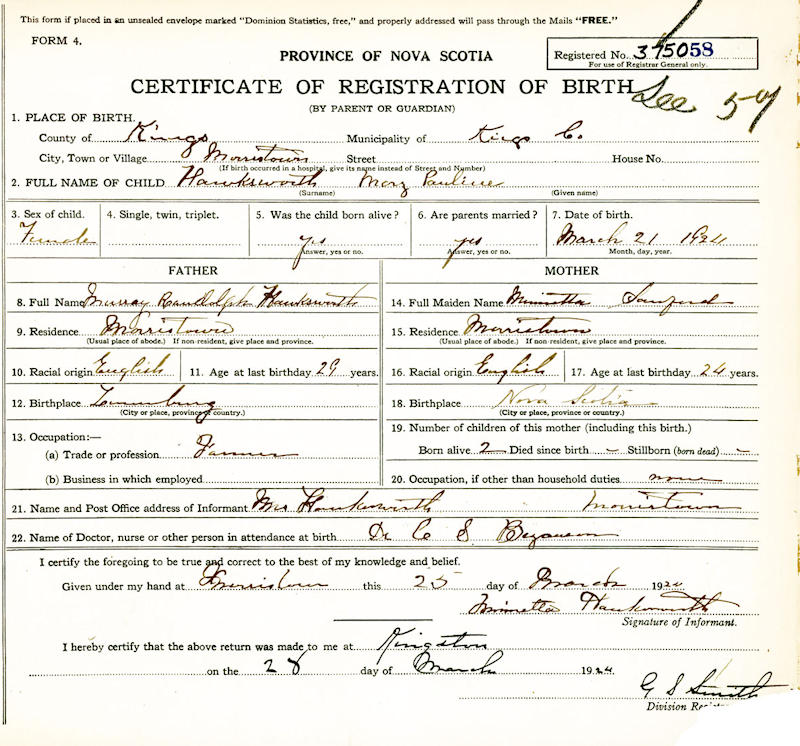 This form if placed in an unsealed envelope marked "Dominion Statistics, free," and properly addressed will pass through the Mails "FREE."
FORM 4.
PROVINCE OF NOVA SCOTIA
Registered No. 375058
For use of Registrar General only.
CERTIFICATE OF REGISTRATION OF BIRTH
See 57
(BY PARENT OR GUARDIAN)
1. PLACE OF BIRTH.
County of Kings Municipality of Kings Co.
City, Town or Village Morristown Street House No.
(If birth occurred in a hospital, give its name instead of Street and Number)
2. FULL NAME OF CHILD Hawksworth Mary Pauline
(Surname) (Given name)
3. Sex of child. 4. Single, twin, triplet. 5. Was the child born alive? 6. Are parents married? 7. Date of birth.
Female yes yes March 21 1924
Answer, yes or no. Answer, yes or no. Month, day, year.
FATHER MOTHER
8. Full Name Murray Randolph Hawksworth 14. Full Maiden Name Minnetta Sanford
9. Residence Morristown 15. Residence Morristown
(Usual place of abode.) If non-resident, give place and province. (Usual place of abode.) If non-resident, give place and province.
10. Racial origin English 11. Age at last birthday 29 years. 16. Racial origin English 17. Age at last birthday 24 years.
12. Birthplace Lunenburg 18. Birthplace Nova Scotia
(City or place, province or country.) (City or place, province or country.)
13. Occupation:— 19. Number of children of this mother (including this birth.)
(a) Trade or profession Farmer Born alive 2 Died since birth - Stillborn (born dead) -
(b) Business in which employed 20. Occupation, if other than household duties none
21. Name and Post Office address of Informant Mrs Hawksworth Morristown
22. Name of Doctor, nurse or other person in attendance at birth Dr C S Bezanson
I certify the foregoing to be true and correct to the best of my knowledge and belief.
Given under my hand at Morristown this 25 day of March 1924
Minnetta Hawksworth
Signature of Informant.
I hereby certify that the above return was made to me at Kingston
on the 28 day of March 1924
G S Smith
Division